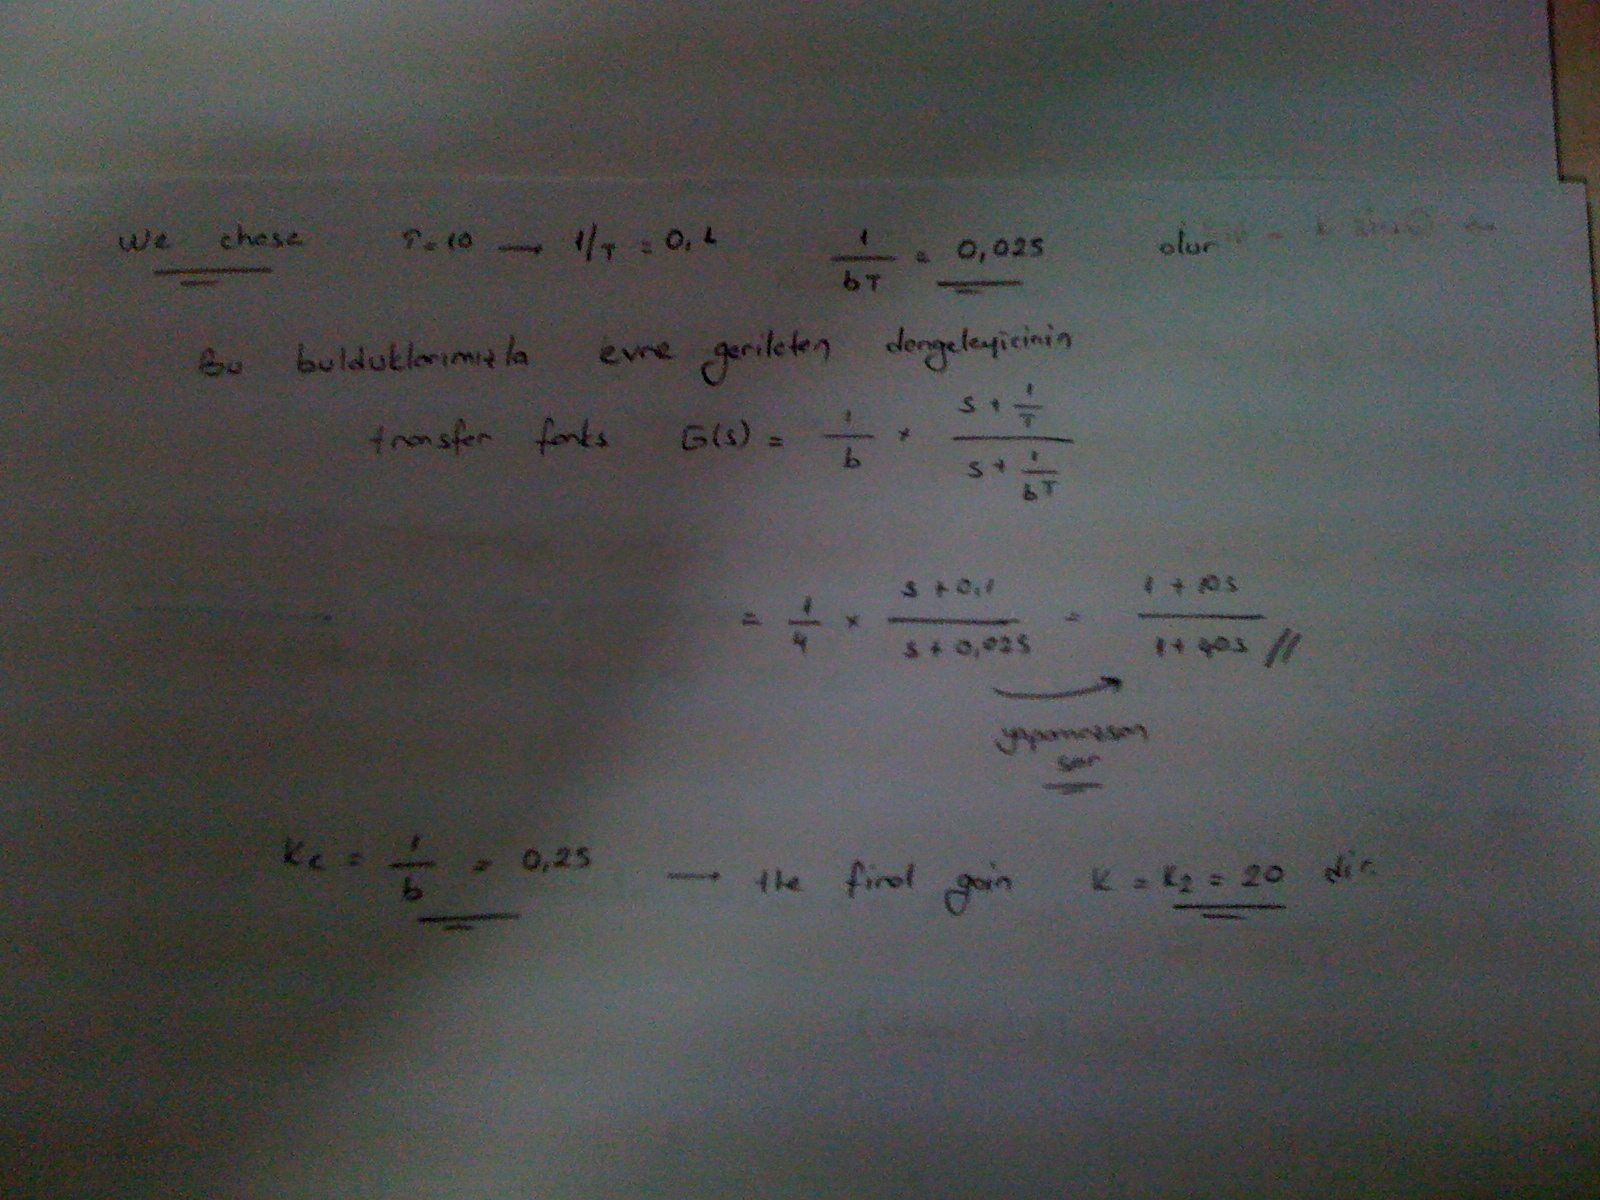 We chose T=10 → 1/T = 0,1 1/bT = 0,025 olur
bu bulduklarımızla evre gerileten dengeleyicinin
transfer fonks G(s) = 1/b × (s + 1/T)/(s + 1/bT)
= 1/4 × (s + 0,1)/(s + 0,025) = (1 + 10s)/(1 + 40s) //
Kc = 1/b = 0,25 → the final gain K = K2 = 20 dir.